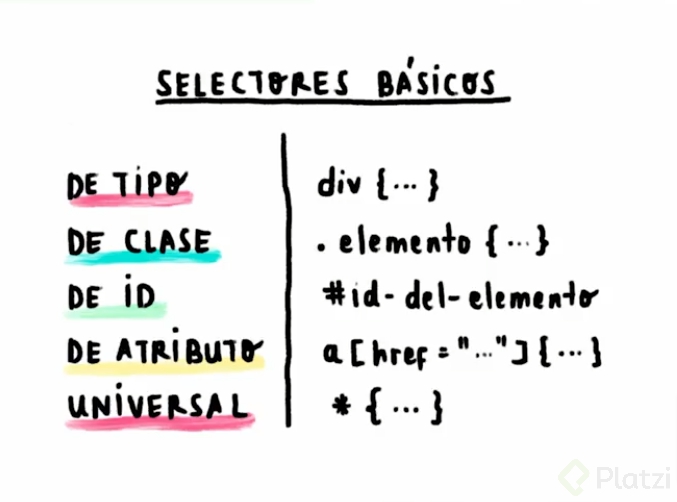 SELECTORES BÁSICOS
DE TIPO div {...}
DE CLASE . elemento {...}
DE ID #id-del-elemento
DE ATRIBUTO a[href="..."]{...}
UNIVERSAL * {...}
Platzi